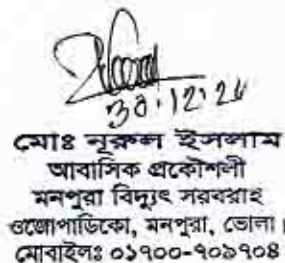 মোঃ নূরুল ইসলাম
আবাসিক প্রকৌশলী
মনপুরা বিদ্যুৎ সরবরাহ
ওজোপাডিকো, মনপুরা, ভোলা।
মোবাইলঃ ০১৭০০-৭০৯৭০৪